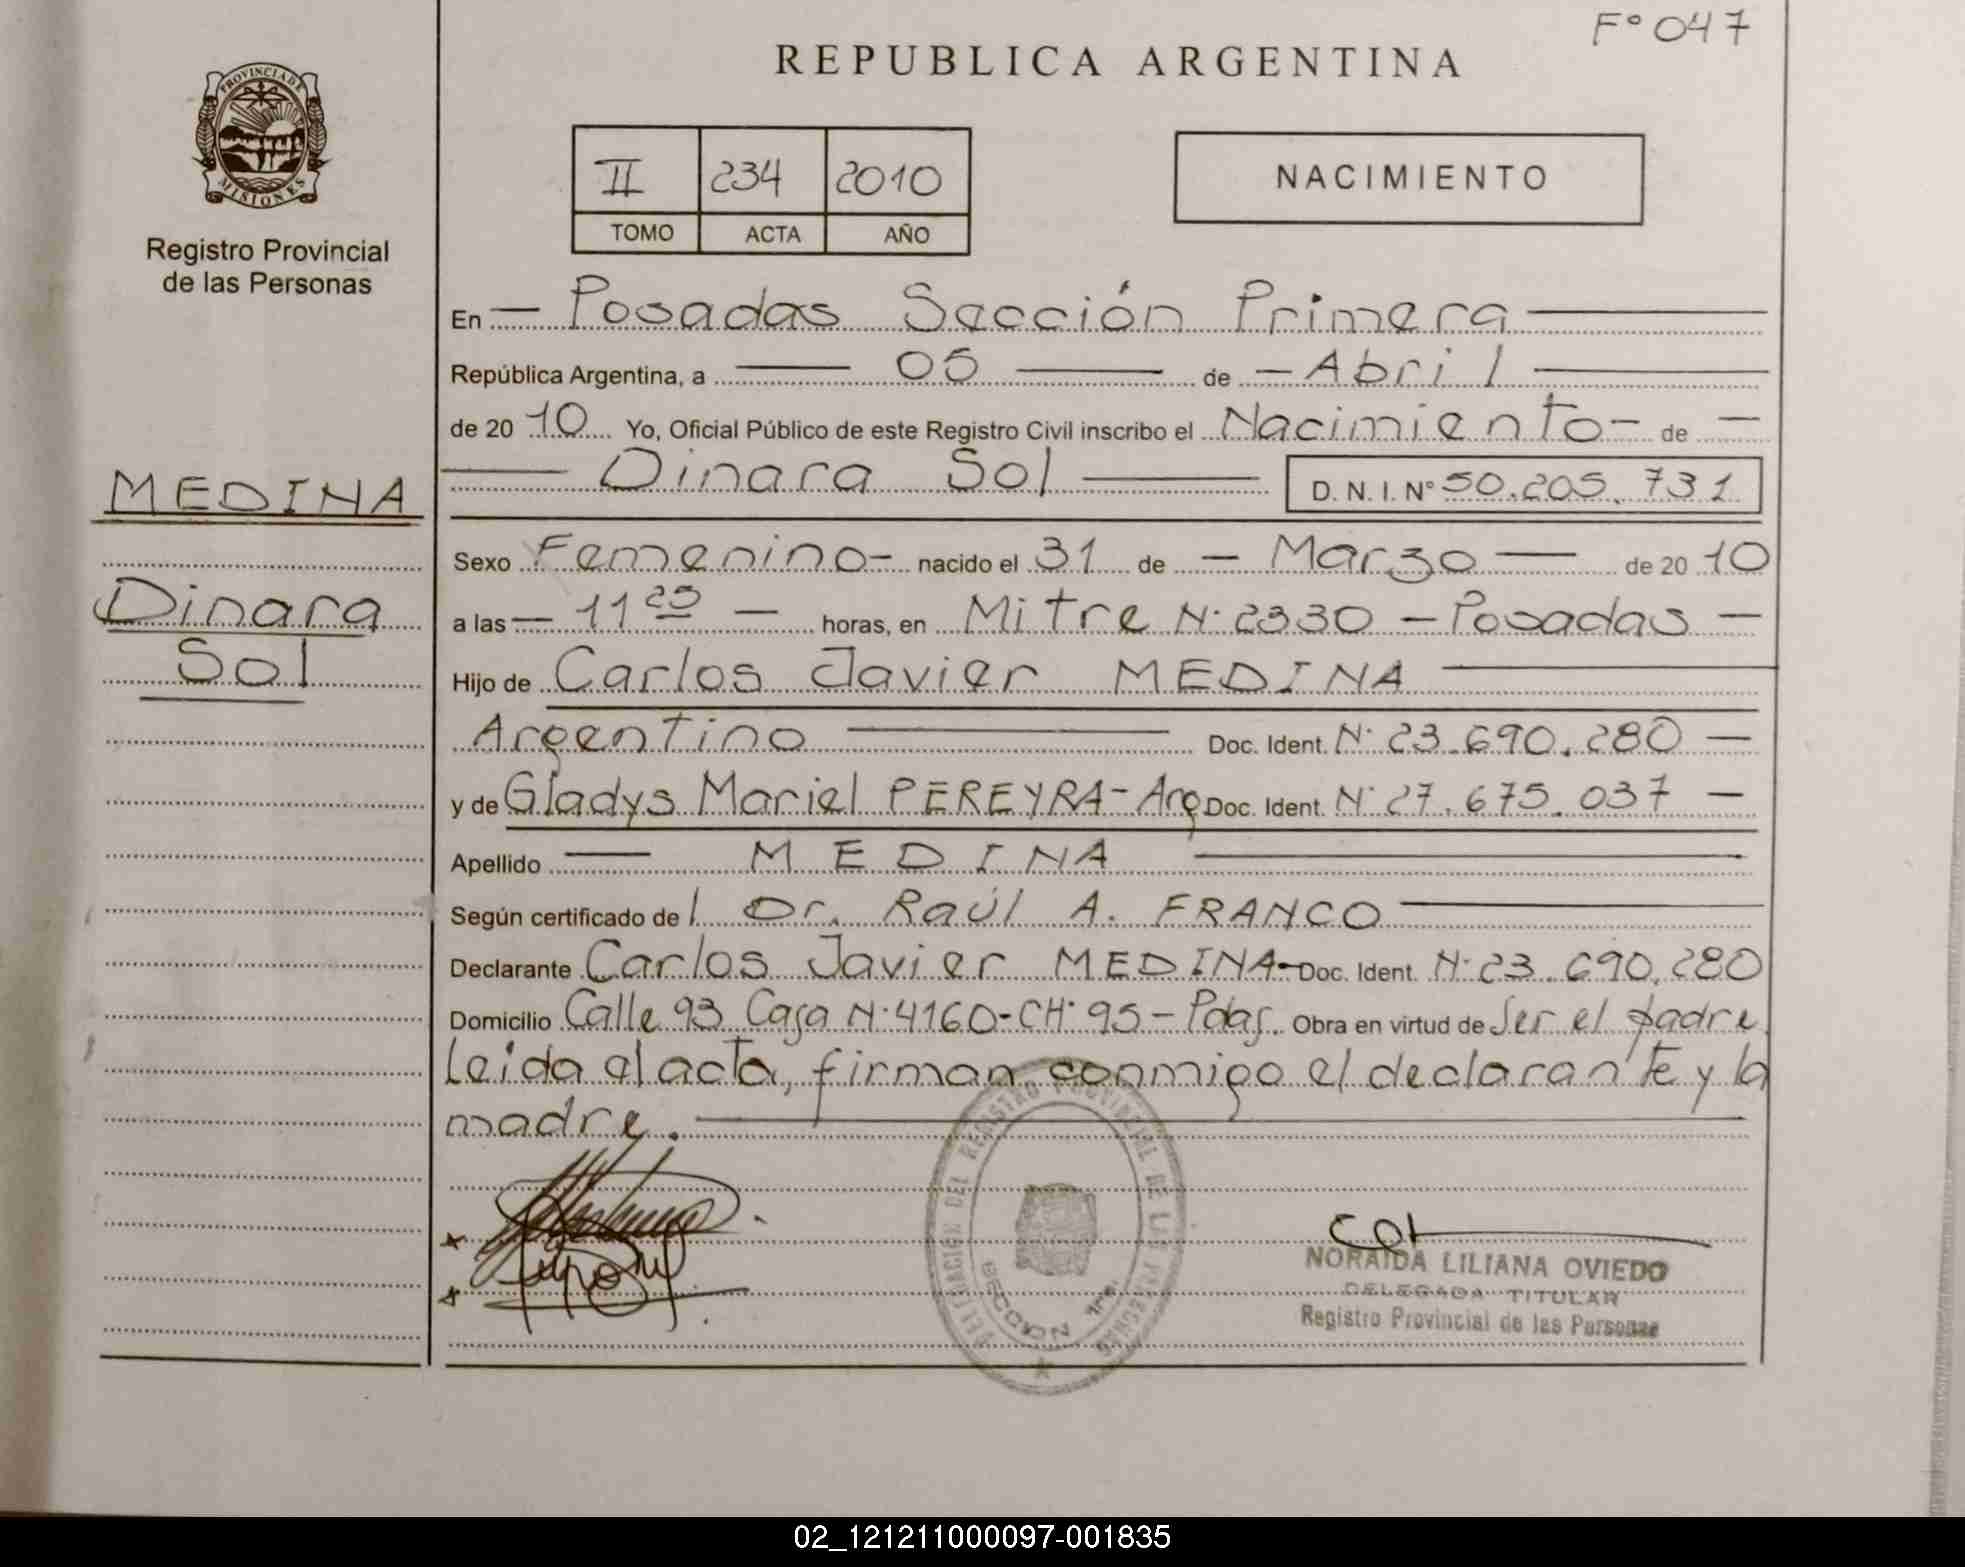 F° 047
REPUBLICA ARGENTINA
PROVINCIA DE
MISIONES
Registro Provincial
de las Personas
II 234 2010
TOMO ACTA AÑO
NACIMIENTO
En — Posadas Sección Primera —
República Argentina, a — 05 — de — Abril —
de 20 10 Yo, Oficial Público de este Registro Civil inscribo el Nacimiento — de —
— Dinara Sol — D. N. I. N° 50.205.731
MEDINA
Dinara
Sol
Sexo Femenino — nacido el 31 de — Marzo — de 20 10
a las — 11 25 — horas, en Mitre N° 2330 — Posadas —
Hijo de Carlos Javier MEDINA —
Argentino — Doc. Ident. N° 23.690.280 —
y de Gladys Mariel PEREYRA - Arg Doc. Ident. N° 27.675.037 —
Apellido — MEDINA —
Según certificado de l Dr. Raúl A. FRANCO —
Declarante Carlos Javier MEDINA — Doc. Ident. N° 23.690.280
Domicilio Calle 93 Casa N° 4160 - CH° 95 - Pdas. Obra en virtud de Ser el padre.
Leída el acta, firman conmigo el declarante y la
madre. —
DELEGACION DEL REGISTRO PROVINCIAL DE LAS PERSONAS
SECCION 1ra.
NORAIDA LILIANA OVIEDO
DELEGADA TITULAR
Registro Provincial de las Personas
02_121211000097-001835